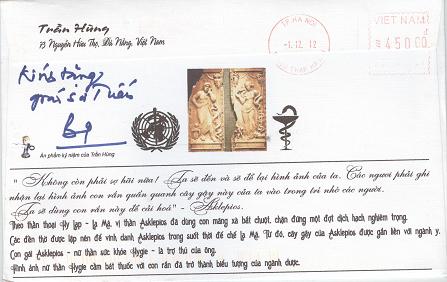 Trần Hùng
73 Nguyễn Hữu Thọ, Đà Nẵng, Việt Nam
TP.HÀ NỘI
-1.12. 12
VIET NAM
đ
45000
Kính tặng
Ấn phẩm kỷ niệm của Trần Hùng
" Không còn phải sợ hãi nữa! Ta sẽ đến và sẽ để lại hình ảnh của ta. Các ngươi phải ghi
nhận lại hình ảnh con rắn quấn quanh cây gậy này của ta vào trong trí nhớ các ngươi.
Ta sẽ dùng con rắn này để cải hoá" - Asklepios.
Theo thần thoại Hy Lạp - La Mã, vị thần Asklepios đã dùng con mãng xà bắt chuột, chặn đứng một đợt dịch hạch nghiêm trọng.
Các đền thờ được lập nên để vinh danh Asklepios trong suốt thời đế chế La Mã. Từ đó, cây gậy của Asklepios được gắn liền với ngành y.
Con gái Asklepios - nữ thần sức khỏe Hygie - là trợ thủ của ông.
Hình ảnh nữ thần Hygie cầm bát thuốc với con rắn đã trở thành biểu tượng của ngành dược.